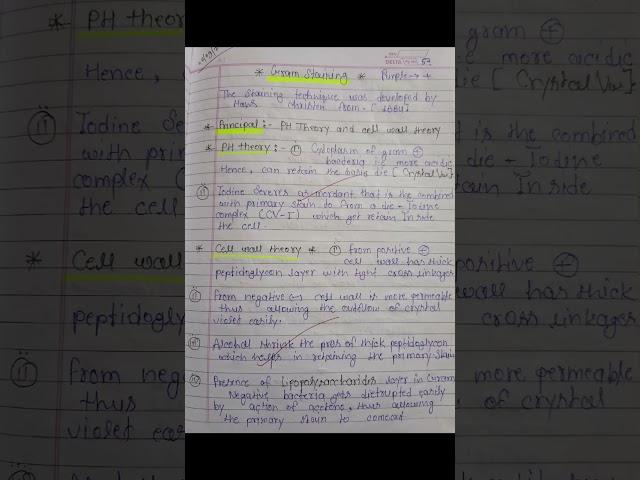 DELTA Pg No. 57
* Gram Staining * Purple → +
The Staining technique was developed by
Hans christian Gram - [1884]
* Principal :- PH Theory and cell wall theory
* PH theory :- (i) Cytoplasm of gram (+)
bacteria is more acidic
Hence, can retain the basic die [Crystal Vio]
(ii) Iodine Serves as merdant that is the combined
with primary stain to from a die - Iodine
complex (CV-I) which get retain Inside
the cell.
* Cell wall theory * (i) from positive (+)
cell wall has thick
peptidoglycon layer with tight cross linkages
(ii) from negative (-) cell wall is more permeable
thus allowing the outflow of crystal
violet easily.
(iii) Alcohol shrink the pres of thick peptidoglycon
which helps in retaining the primary stain
(iv) Presence of Lipopolysaccharides layer in Gram
Negative bacteria gets distrupted easily
by action of acetone, thus allowing
the primary stain to comeout